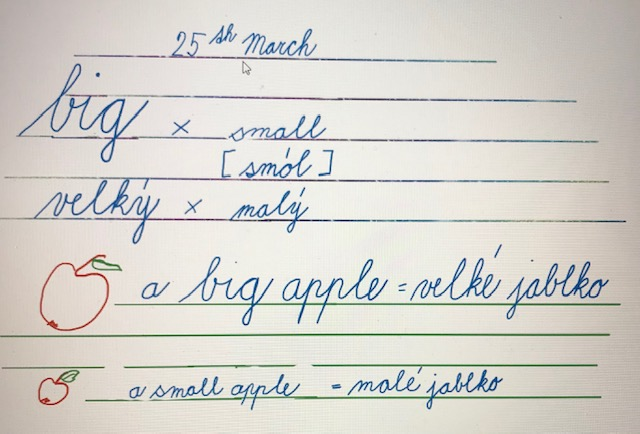 25th March
big × small
[smól]
velký × malý
a big apple = velké jablko
a small apple = malé jablko